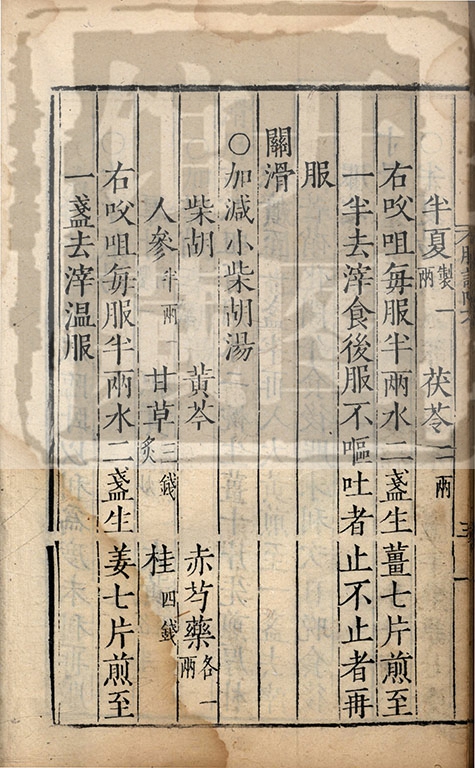 半夏製一兩 茯苓二兩
右㕮咀每服半兩水二盞生薑七片煎至
一半去滓食後服不嘔吐者止不止者再
服
關滑
○加減小柴胡湯
柴胡 黃芩 赤芍藥各一兩
人參半兩一 甘草三錢炙 桂四錢
右㕮咀每服半兩水二盞生姜七片煎至
一盞去滓温服